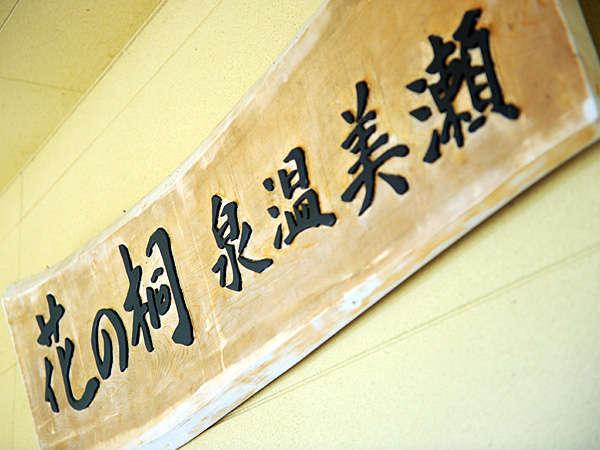 瀬美温泉 桐の花